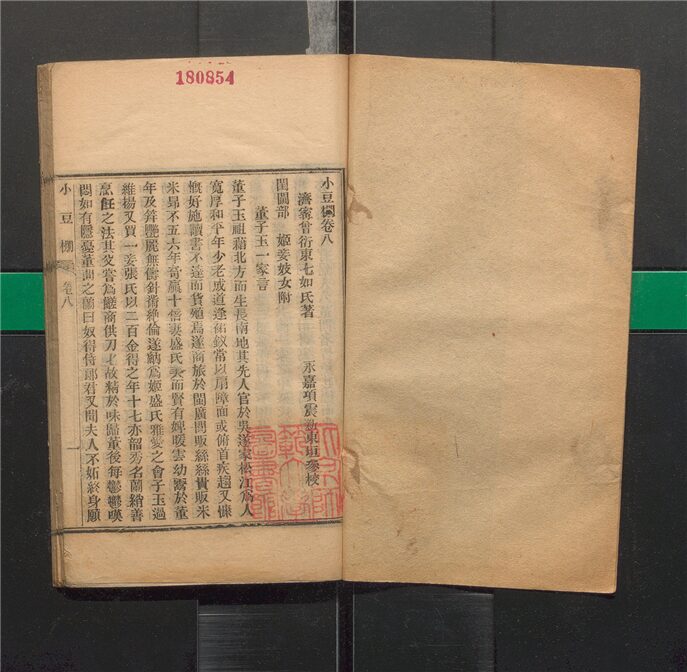 180854
小豆棚卷八
濟寧曾衍東七如氏著 永嘉項震新東垣參校
閨閫部 姬妾妓女附
董子玉一家言
董子玉祖藉北方而生長南地其先人官於吳遂家松江爲人
寬厚和平年少老成道逢佑釵常以扇障面或俯首疾趨又慷
慨好施讀書不遂而貨殖焉遂商旅於閩廣間販絲絲貴販米
米昂不五六年奇贏十倍妻盛氏美而賢有婢暖雲幼鬻於董
年及笄艷麗無儔針黹絶倫遂納爲姬盛氏雅愛之會子玉過
維揚又買一妾張氏以二百金得之年十七亦韶秀名蘭綃善
烹飪之法其父嘗爲鹺商供刀匕故精於味歸董後每鬱鬱嘆
悶如有隱憂董詢之蘭曰奴得侍郎君又閒夫人不妬終身願
小豆棚 卷八 一